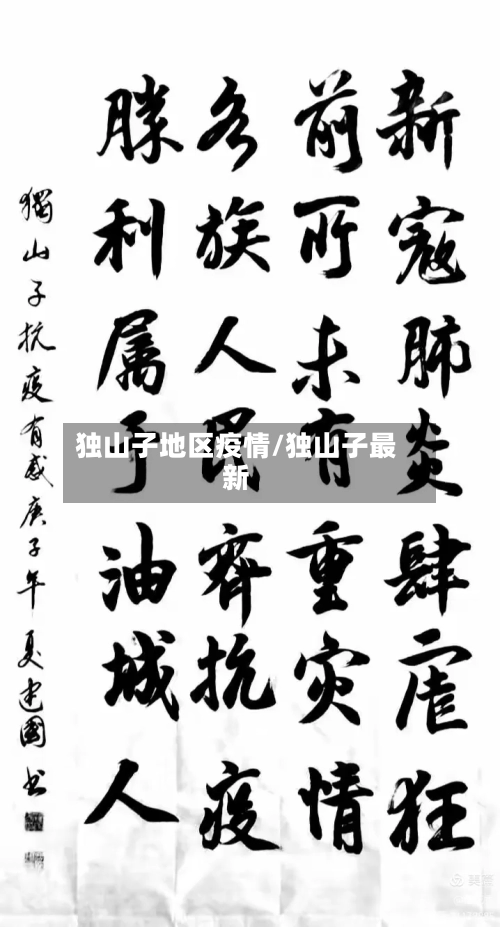 新寇肺炎肆虐狂
前所未有重灾情
各族人民齊抗疫
勝利属于油城人
獨山子抗疫有感庚子年夏建國书
独山子地区疫情/独山子最
新